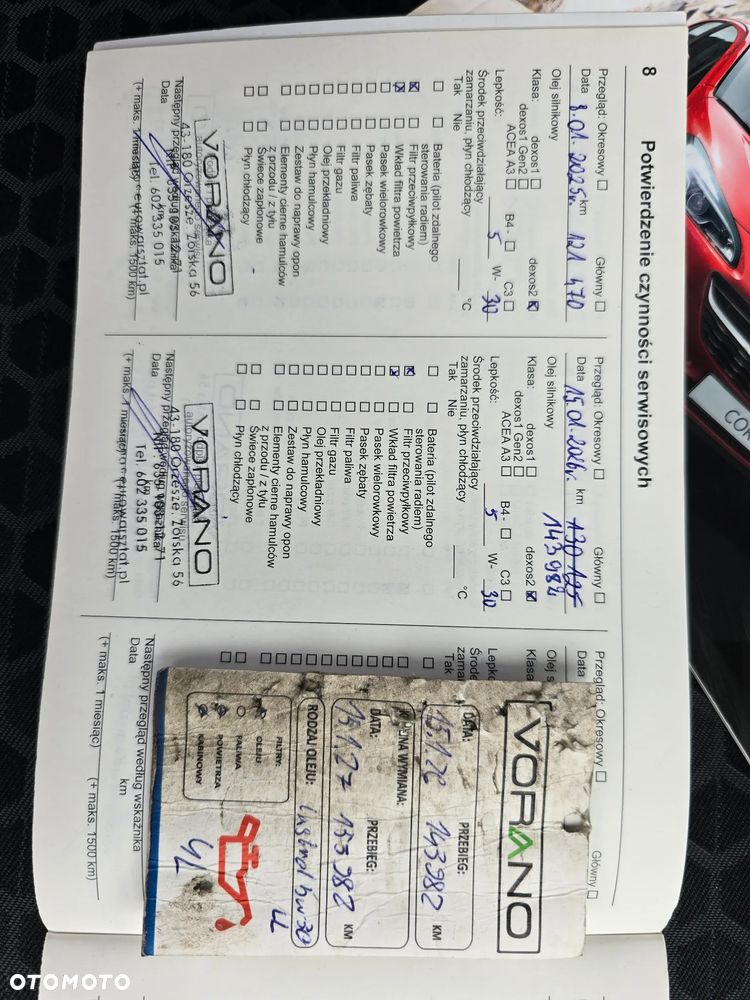 8 Potwierdzenie czynności serwisowych
Przegląd: Okresowy Główny
Data 8.01.2025r. km 121 470
Olej silnikowy
Klasa: dexos1 dexos2
dexos1 Gen2
ACEA A3 B4- C3
Lepkość: 5 W- 30
Środek przeciwdziałający
zamarzaniu, płyn chłodzący °C
Tak Nie
Bateria (pilot zdalnego
sterowania radiem)
Filtr przeciwpyłkowy
Wkład filtra powietrza
Pasek wielorowkowy
Pasek zębaty
Filtr paliwa
Filtr gazu
Olej przekładniowy
Płyn hamulcowy
Zestaw do naprawy opon
Elementy cierne hamulców
z przodu / z tyłu
Świece zapłonowe
Płyn chłodzący
VORANO
43-180 Orzesze, Żorska 56
Następny przegląd według wskaźnika
Data
tel. 602 335 015
(+ maks. 1 miesiąc) (+ maks. 1500 km)
Przegląd: Okresowy Główny
Data 15.01.2026r. km 130 125
143982
Olej silnikowy
Klasa: dexos1 dexos2
dexos1 Gen2
ACEA A3 B4- C3
Lepkość: 5 W- 30
Środek przeciwdziałający
zamarzaniu, płyn chłodzący °C
Tak Nie
Bateria (pilot zdalnego
sterowania radiem)
Filtr przeciwpyłkowy
Wkład filtra powietrza
Pasek wielorowkowy
Pasek zębaty
Filtr paliwa
Filtr gazu
Olej przekładniowy
Płyn hamulcowy
Zestaw do naprawy opon
Elementy cierne hamulców
z przodu / z tyłu
Świece zapłonowe
Płyn chłodzący
VORANO
43-180 Orzesze, Żorska 56
Następny przegląd według wskaźnika
Data
tel. 602 335 015
(+ maks. 1 miesiąc) (+ maks. 1500 km)
Przegląd: Okresowy Główny
Data
Olej s
Klasa
Lepko
Środe
zamar
Tak
Następny przegląd według wskaźnika
Data km
(+ maks. 1 miesiąc) (+ maks. 1500 km)
VORANO
DATA: PRZEBIEG:
15.1.26 143982 KM
WYMIANA:
DATA: PRZEBIEG:
15.1.27 153982 KM
RODZAJ OLEJU: 5w30
FILTRY:
OLEJU
PALIWA
POWIETRZA
KABINOWY
4L
COR
OTOMOTO